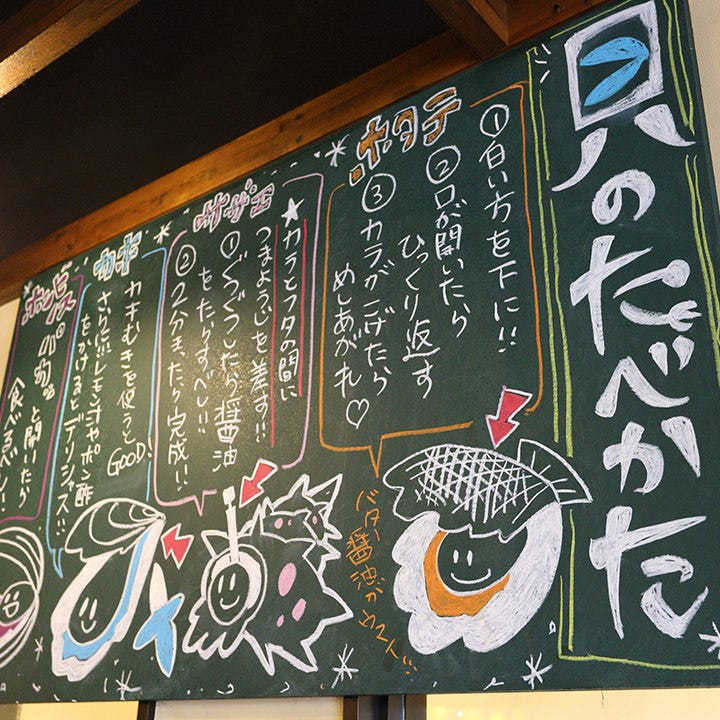 貝のたべかた
ホタテ
①白い方を下に!!
②口が開いたら
ひっくり返す
③カラがこげたら
めしあがれ♡
バター醤油がウマスト…
サザエ
★カラとフタの間に
つまようじを差す!!
①ぐつぐつしたら醤油
をたらすべし!!
②2分まったら完成!!
カキ
カキむきを使うと
GOOD!
さらに!!レモン汁やポン酢
をかけるとデリシャス!!
ホンビノス
パカッ
と開いたら
食べるべし!